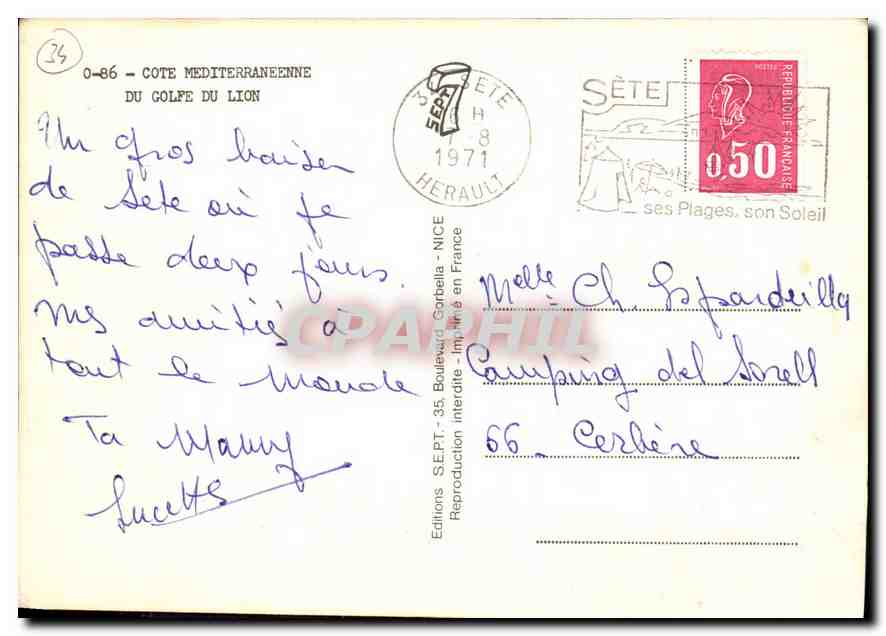 34
O-86 - COTE MEDITERRANEENNE
DU GOLFE DU LION
Un gros baiser
de Sete où je
passe deux jours.
mes amitiés à
tout le Monde
Ta Mamy
Lucette
SEPT
34 SETE
H
8
1971
HERAULT
SÈTE
ses Plages, son Soleil
REPUBLIQUE FRANÇAISE
0,50
Editions S.E.P.T. - 35, Boulevard Gorbella - NICE
Reproduction interdite - Imprimé en France
Melle Ch. Espardeilla
Camping del Sorell
66 - Cerbère
CPAPHIL